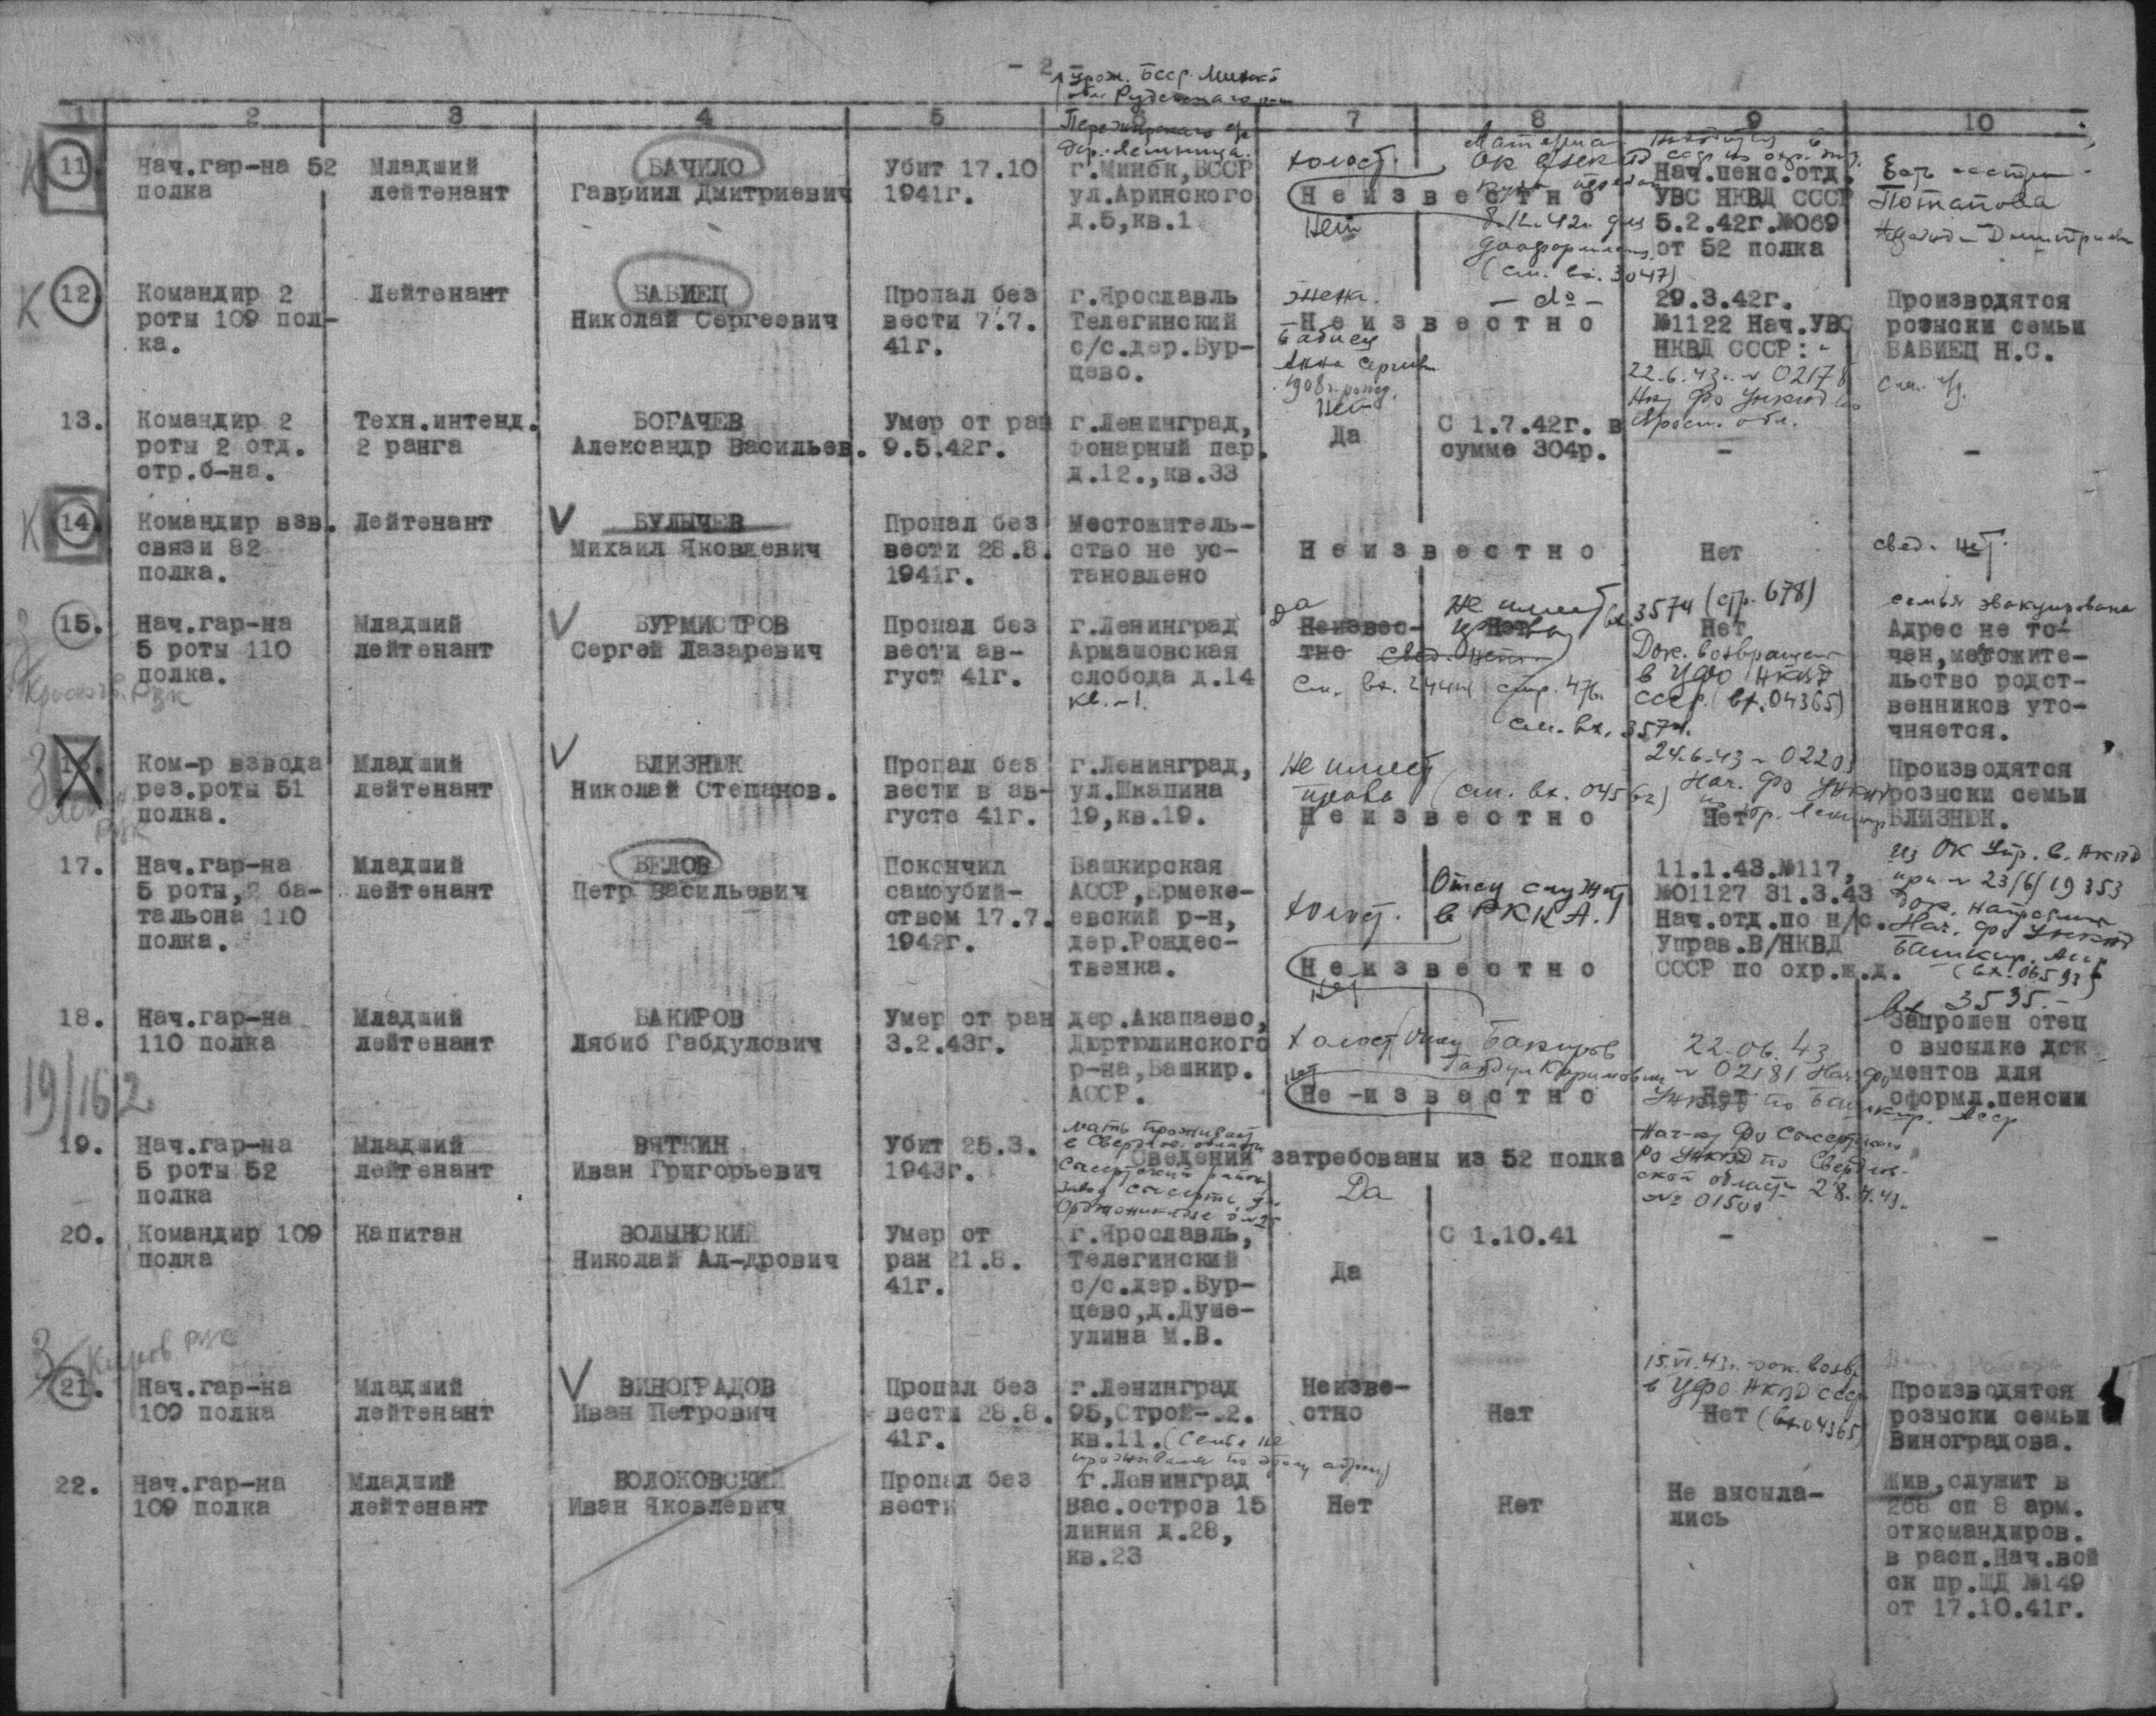 - 2
1 2 3 4 5 6 7 8 9 10
урож. Бсср. Минск
обл
дер.
11. Нач.гар-на 52 полка
Младший лейтенант
БАЧИЛО
Гавриил Дмитриевич
Убит 17.10
1941г.
г.Минск,БССР
ул.Аринского
д.5,кв.1
холост.
Неизвестно
Нет
8.12.42г. для
дооформления
(см. вх. 3047)
Нач.пенс.отд.
УВС НКВД СССР
5.2.42г.№069
от 52 полка
Потапова
К
12. Командир 2
роты 109 пол-
ка.
Лейтенант
БАБИЕЦ
Николай Сергеевич
Пропал без
вести 7.7.
41г.
г.Ярославль
Телегинский
с/с.дер.Бур-
цево.
жена.
Неизвестно
Бабиец
Анна Сергеев
1908г. рожд.
Нет
- do -
29.3.42г.
№1122 Нач.УВС
НКВД СССР:
22.6.43г. № 02178
Производятся
розыски семьи
БАБИЕЦ Н.С.
13. Командир 2
роты 2 отд.
стр.б-на.
Техн.интенд.
2 ранга
БОГАЧЕВ
Александр Васильев.
Умер от ран
9.5.42г.
г.Ленинград,
фонарный пер.
д.12.,кв.33
Да
С 1.7.42г. в
сумме 304р.
-
-
К
14. Командир взв.
связи 82
полка.
Лейтенант
V БУЛЫЧЕВ
Михаил Яковлевич
Пропал без
вести 28.8.
1941г.
Местожитель-
ство не ус-
тановлено
Неизвестно
Нет
свед. нет.
15. Нач.гар-на
5 роты 110
полка.
Младший
лейтенант
V БУРМИСТРОВ
Сергей Лазаревич
Пропал без
вести ав-
густ 41г.
г.Ленинград
Армашовская
слобода д.14
кв.-1.
да
Неизвес-
тно
Не имеет
Нет
свед. нет.
вх. 3574 (стр. 678)
Нет
Док. возвращен
в УФО НКВД
СССР (вх.04365)
см. вх. 3574.
семья эвакуирована
Адрес не то-
чен,местожите-
льство родст-
венников уто-
чняется.
РВК
16. Ком-р взвода
рез.роты 51
полка.
Младший
лейтенант
V БЛИЗНЮК
Николай Степанов.
Пропал без
вести в ав-
густе 41г.
г.Ленинград,
ул.Шкапина
19,кв.19.
Не имеет
права
Неизвестно
24.6.43 - 02203
Нач. ФО УНКВД
Нет
Производятся
розыски семьи
БЛИЗНЮК.
17. Нач.гар-на
5 роты,2 ба-
тальона 110
полка.
Младший
лейтенант
БЕЛОВ
Петр Васильевич
Покончил
самоубий-
ством 17.7.
1942г.
Башкирская
АССР,Ермеке-
евский р-н,
дер.Рождес-
твенка.
холост.
Неизвестно
Нет
Отец служит
в РККА.
11.1.43.№117,
№01127 31.3.43
Нач.отд.по н/с.
Управ.В/НКВД
СССР по охр.ж.д.
из ОК Упр. В. НКВД
при № 23/6/19353
Док. направлен
Нач. ФО УНКВД
Башкир. Асср
18. Нач.гар-на
110 полка
Младший
лейтенант
БАКИРОВ
Лябиб Габдулович
Умер от ран
3.2.43г.
дер.Акапаево,
Дюртюлинского
р-на,Башкир.
АССР.
холост
Отец Бакиров
Габдул Каримович
Нет
Не-известно
22.06.43
№ 02181 Нач. ФО
УНКВД по Башкир. Асср
Нет
вх 3595.-
Запрошен отец
о высылке док
ментов для
оформл.пенсии
19/162
19. Нач.гар-на
5 роты 52
полка
Младший
лейтенант
ВЯТКИН
Иван Григорьевич
Убит 25.3.
1943г.
мать проживает
в Свердлов. области
Сведения затребованы из 52 полка
Да
РО УНКВД по Свердлов-
ской области 28.4.43.
№ 01500
20. Командир 109
полка
Капитан
ВОЛЫНСКИЙ
Николай Ал-дрович
Умер от
ран 21.8.
41г.
г.Ярославль,
Телегинский
с/с.дер.Бур-
цево,д.Душе-
улина М.В.
Да
С 1.10.41
-
-
Киров РВК
21. Нач.гар-на
109 полка
Младший
лейтенант
V ВИНОГРАДОВ
Иван Петрович
Пропал без
вести 28.8.
41г.
г.Ленинград
95,Строй-.2.
кв.11. (Семья не
проживала по этому адресу)
Неизве-
стно
Нет
15.VI.43г. док. возвр.
в УФО НКВД СССР
Нет (вх.04365)
Производятся
розыски семьи
Виноградова.
22. Нач.гар-на
109 полка
Младший
лейтенант
ВОЛОКОВСКИЙ
Иван Яковлевич
Пропал без
вести
г.Ленинград
Вас.остров 15
линия д.28,
кв.23
Нет
Нет
Не высыла-
лись
Жив,служит в
268 сп 8 арм.
откомандиров.
в расп.Нач.вой
ск пр.ЖД №149
от 17.10.41г.